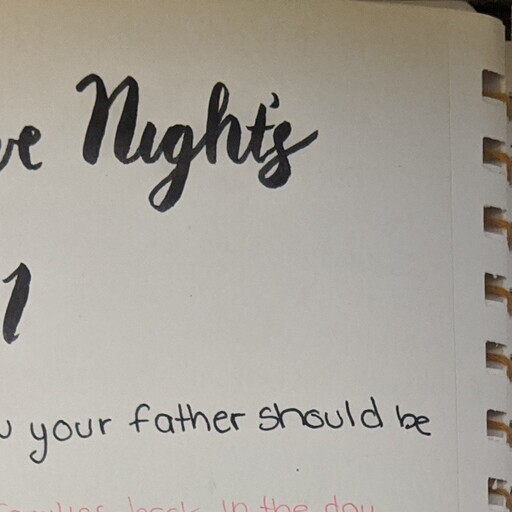 Night's
1
your father should be
back in the day